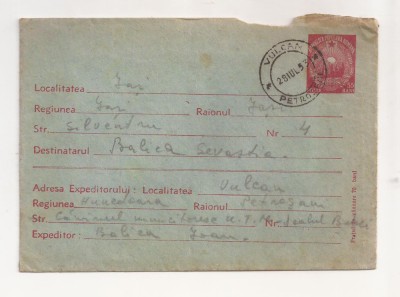 VULCAN
28 IUL. 53
PETROȘ
Localitatea Iași
Regiunea Iași Raionul Iași
Str. Silvestru Nr. 4
Destinatarul Balica Sevastia.
Adresa Expeditorului: Localitatea Vulcan
Regiunea Hunedoara Raionul Petroșani
Str. Căminul muncitoresc Nr.
Expeditor: Balica Ioan.